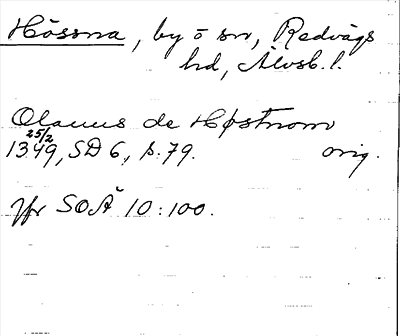 Hössna, by o sn, Redvägs
hd, Älvsb. l.
Olauus de Høstrom
25/2
1349, SD 6, s. 79. orig.
Jfr SOÄ 10:100.